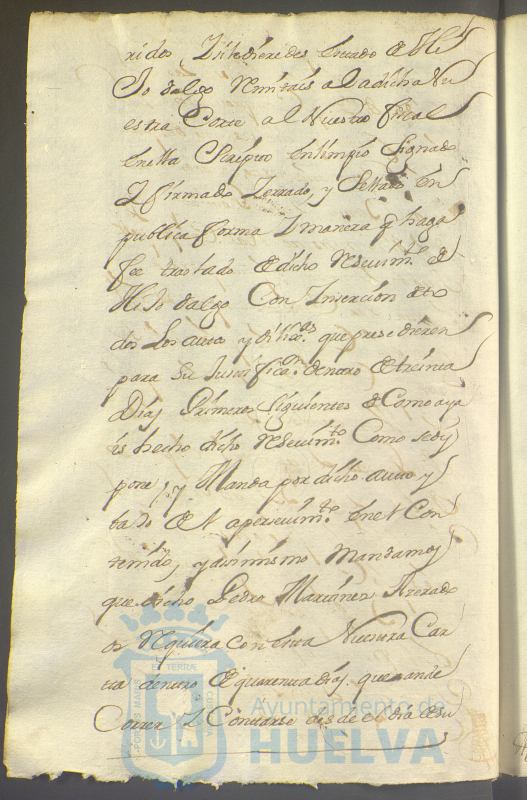 ridos, Litediere des enrado de Hi
Jo dalgo Remitais a la dicha Nu
estra Corte a el Nuestro fiscal
en ella Scripto en limpio Signado
I firmado Zerrado, y Sellado en
publica forma I manera q haga
fee traslado de dicho Resevim.to de
Hijo dalgo Con Inserción de to
dos Los autos y dilix.as que prese dieren
para Su Justificaz.on dentro de treinta
Dias Primeros Siguientes de Como aya
is hecho dicho Resevim.to Como se dis
pone, y Manda por dicho auto y
bajo de el apersevim.to en el Con
tenido, y assimismo Mandamos
que dicho Pedro Martines Prezado
os Requiera con esta Nuestra Car
ta dentro de quarenta dias que ande
Correr I Contarse des de el dia de su
PORTUS MARIS
ET TERRAE
CUSTODIA
Ayuntamiento de
HUELVA